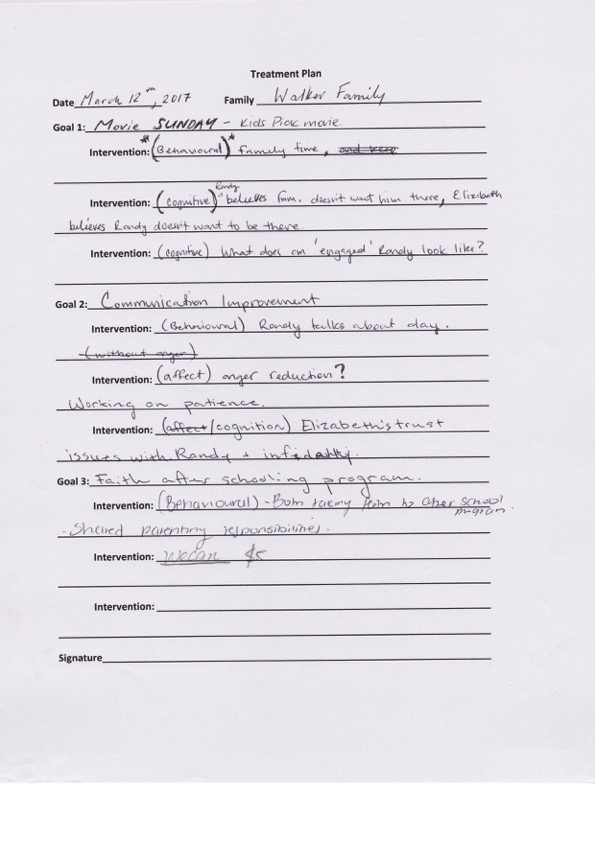 Treatment Plan
Date March 12th, 2017 Family Walker Family
Goal 1: Movie SUNDAY - Kids Pick movie.
Intervention: *(Behavioural)* family time,
Intervention: (cognitive) Randy "believes fam. doesn't want him there, Elizabeth
believes Randy doesn't want to be there.
Intervention: (cognitive) What does an 'engaged' Randy look like?
Goal 2: Communication Improvement
Intervention: (Behavioural) Randy talks about day.
(without anger)
Intervention: (affect) anger reduction?
Working on patience.
Intervention: (affect/cognition) Elizabeth's trust
issues with Randy + infidality.
Goal 3: Faith after schooling program.
Intervention: (Behavioural) - Both taking to after school
program.
- Shared parenting responsibilities.
Intervention: Wecan $5
Intervention:
Signature